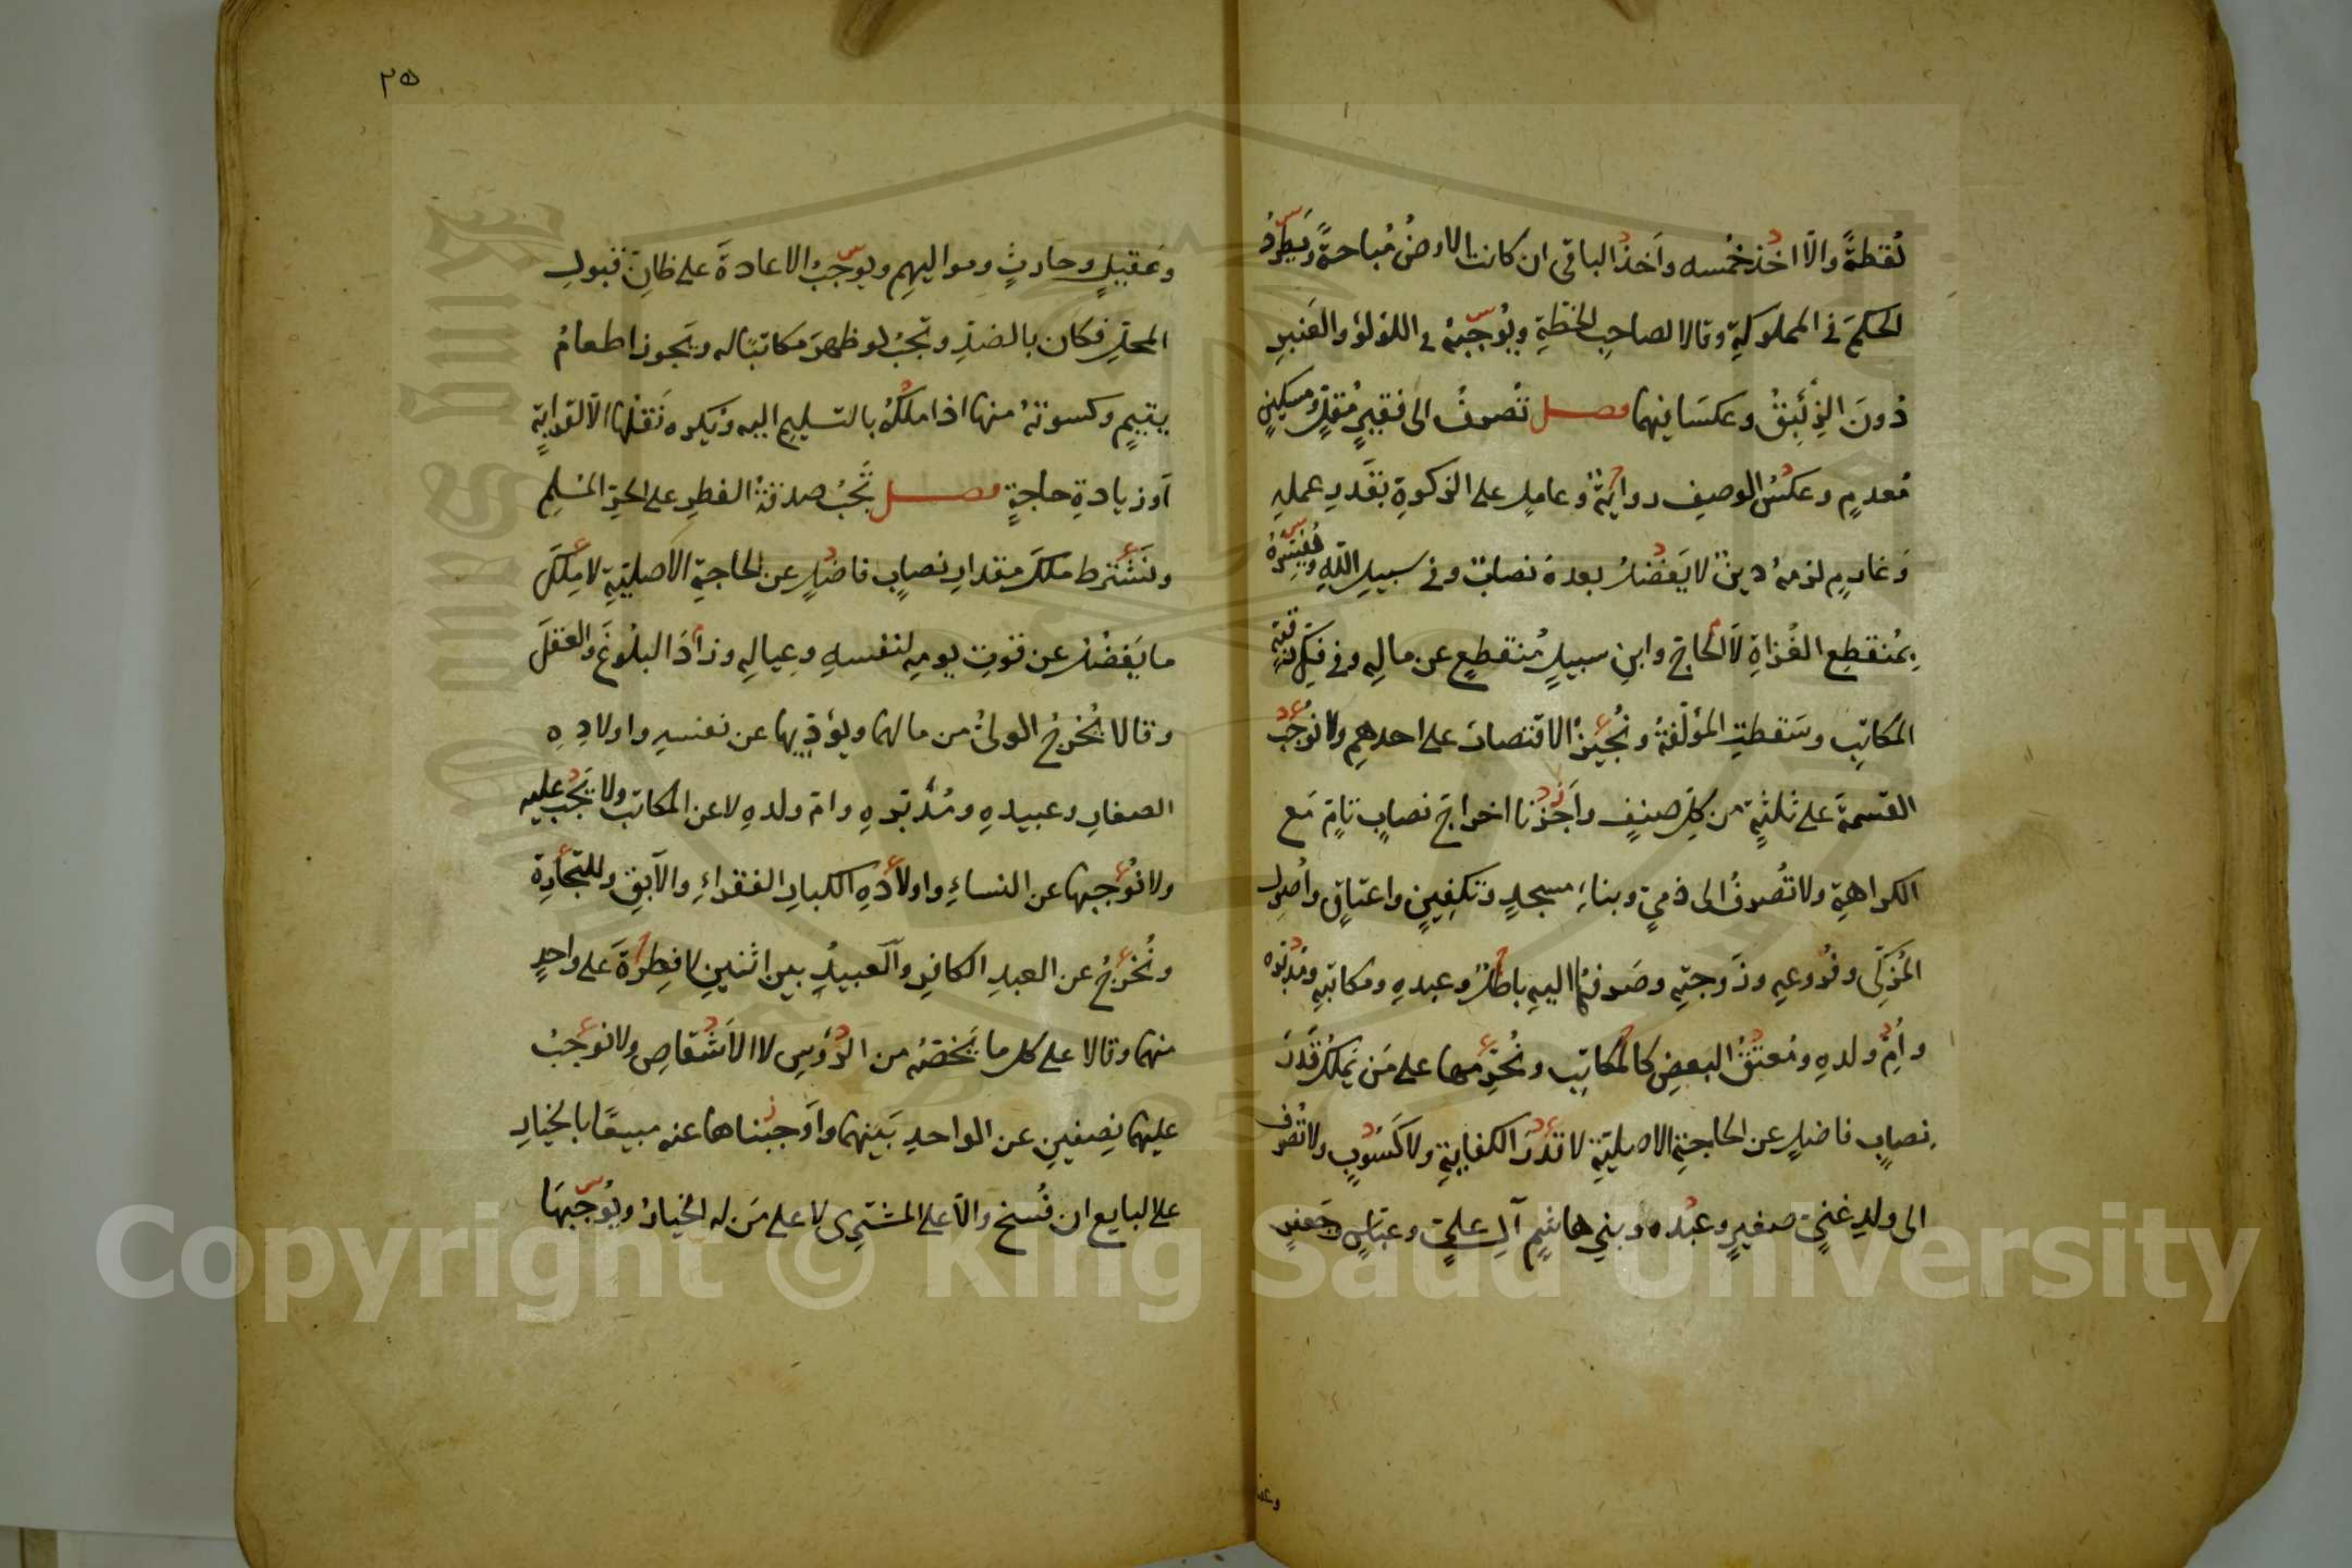 لُقَطةً والّا اخذ خُمسه واَخذُ الباقى ان كانت الارضُ مُباحةً ويَطرُد
الحكمَ فى المملوكةِ وقالا لصاحبِ الخِطّةِ ويُوجّبهُ فى اللؤلؤ والعَنبرِ
دُونَ الزئبقُ وعكسَا فيهما فصل تُصرفُ الى فقيرٍ مُقلٍّ ومسكينٍ
مُعدمٍ وعكسُ الوصفِ روايةٌ وعاملٍ على الزكوةِ بقَدرِ عملهِ
وَغارمٍ لزمهُ دينٌ لا يَفضلُ بعدهُ نصابٌ وفى سبيلِ اللهِ ويُفسّرهُ
بمُنقطِع الغُزاةِ لا الحاجّ وابنِ سبيلٍ مُنقطعٍ عن مالِه وفى فكِّ رقبةِ
المكاتبِ وسَقطتِ المؤلّفةُ ونُجيزُ الاقتصارَ على احدهِم ولا نُوجبُ
القسمةَ على ثلثةٍ من كلِّ صنفٍ واَجَزنا اخراجَ نصابٍ تامٍّ مَع
الكراهةِ ولا تُصرفُ الى ذميٍّ وبناءِ مسجدٍ وتكفينٍ واعتاقٍ واُصولِ
المُزكّى وفُروعِه وزَوجتِه وصَرفُها اليهِ باطلٌ وعبدهِ ومكاتبهِ ومُدبّره
واُمِّ ولدهِ ومُعتقُ البعضِ كالمكاتبِ ونُحرّمها على مَن يَملكُ قَدرَ
نصابٍ فاضلٍ عن الحاجةِ الاصليّةِ لا قدرَ الكفايةِ ولا كَسُوبٍ ولا تُصرف
الى ولدِ غنيٍّ صغيرٍ وعبده وبنى هاشمٍ آلِ عليٍّ وعبّاسٍ وجعفرٍ
٢٥
وعقيلٍ وحارثٍ ومواليهِم ويوجبُ الاعادةَ على ظانِّ قبولِ
المحلِّ فكان بالضدِّ وتجبُ لو ظهرَ مكاتبًا له ويَجوز اطعامُ
يتيمٍ وكسوتهُ منها اذا ملّكهُ بالتسليمِ اليه ويُكره نَقلُها الّا لقرابةٍ
اَو زيادةِ حاجةٍ فصل تَجبُ صدقةُ الفطرِ على الحرِّ المسْلمِ
ونَشترط ملكَ مقدارِ نصابٍ فاضلٍ عن الحاجةِ الاصليّةِ لا مِلكَ
ما يَفضُل عن قوتِ يومِه لنفسهِ وعيالهِ وزادَ البلوغَ والعقلَ
وقالا يُخرجُ الولىُّ من مالهما ويؤدّيها عن نفسهِ واولادِهِ
الصغارِ وعبيدهِ ومُدبّرهِ وامّ ولدهِ لا عن المكاتبِ ولا تَجبُ عليه
ولا نُوجبها عن النساءِ واولادهِ الكبارِ الفقراءِ والآبقِ وللتجارةِ
ونُخرجُ عن العبدِ الكافرِ والعبيدُ بين اثنينِ لا فِطرةَ على واحدٍ
منهما وقالا على كل ما يَخصّهُ من الرؤسِ لا الاَشقاصِ ولا نوجبُ
عليهما نِصفينِ عن الواحدِ بَينهما واَوجبناها عنه مبيعًا بالخيارِ
على البايع ان فُسخ والّا على المشترى لا على مَن له الخيارُ ويُوجّبهَا
Copyright © King Saud University